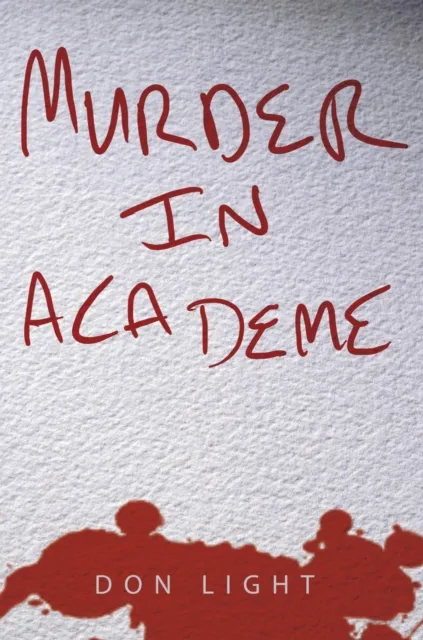 MURDER
IN
ACADEME
DON LIGHT